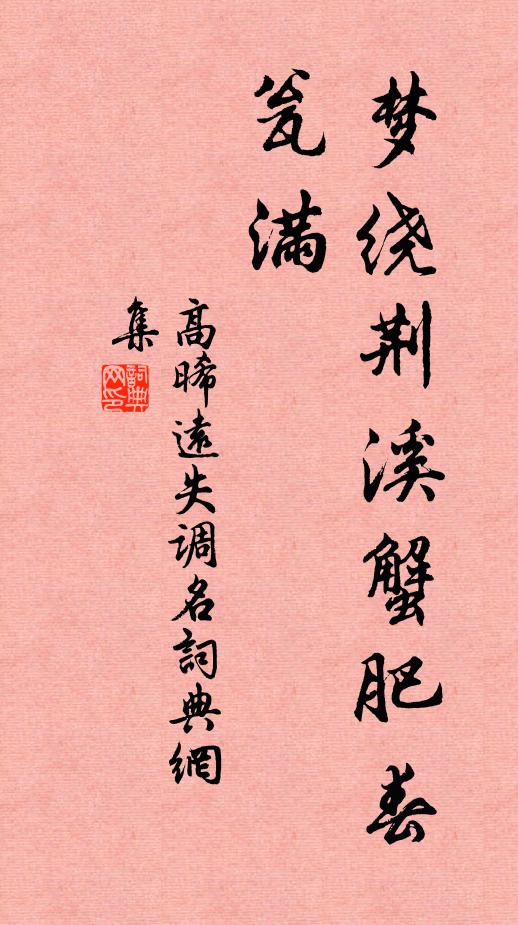 梦绕荆溪蟹肥春
瓮满
高晞遠失调名詞典網
集
詞典
网印